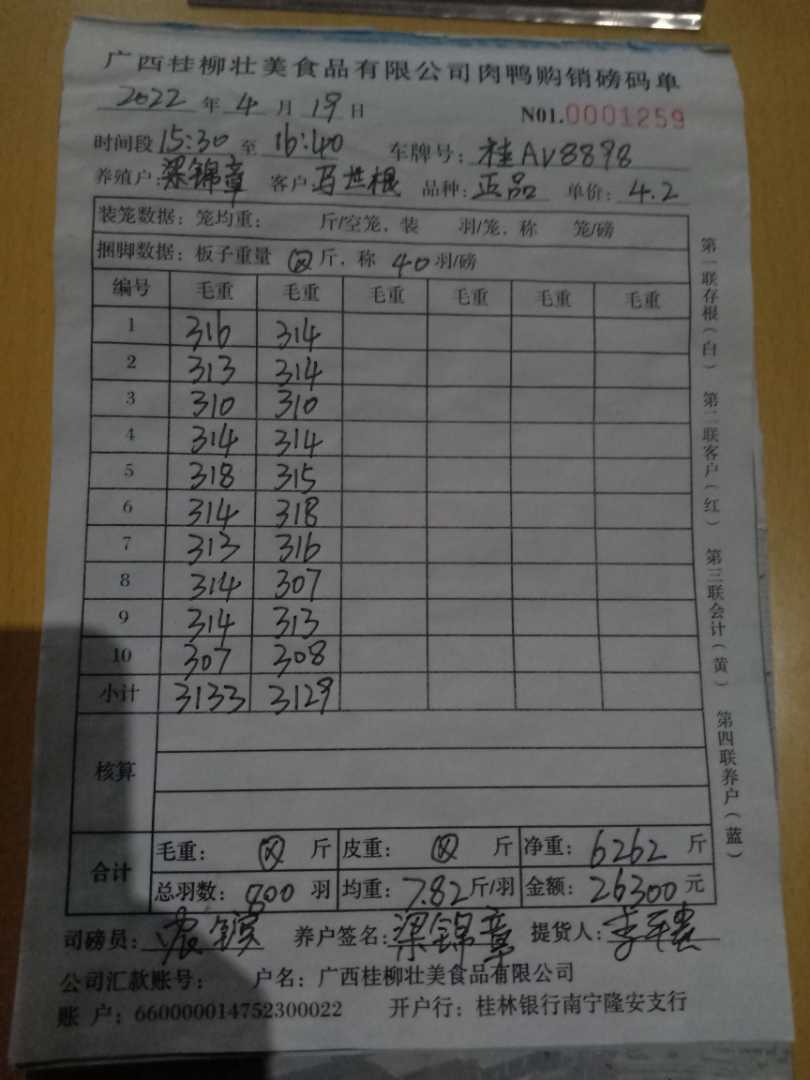 广西桂柳壮美食品有限公司肉鸭购销磅码单
2022 年 4 月 19 日 N01.0001259
时间段 15:30 至 16:40 车牌号: 桂AV8898
养殖户: 梁锦章 客户 马世根 品种: 正品 单价: 4.2
装笼数据: 笼均重: 斤/空笼, 装 羽/笼, 称 笼/磅
捆脚数据: 板子重量 斤, 称 40 羽/磅
编号 毛重 毛重 毛重 毛重 毛重 毛重
1 316 314
2 313 314
3 310 310
4 314 314
5 318 315
6 314 318
7 313 316
8 314 307
9 314 313
10 307 308
小计 3133 3129
核算
合计
毛重: 斤 皮重: 斤 净重: 6262 斤
总羽数: 800 羽 均重: 7.82 斤/羽 金额: 26300 元
司磅员: 养户签名: 梁锦章 提货人:
公司汇款账号: 户名: 广西桂柳壮美食品有限公司
账 户: 660000014752300022 开户行: 桂林银行南宁隆安支行
第一联存根(白) 第二联客户(红) 第三联会计(黄) 第四联养户(蓝)